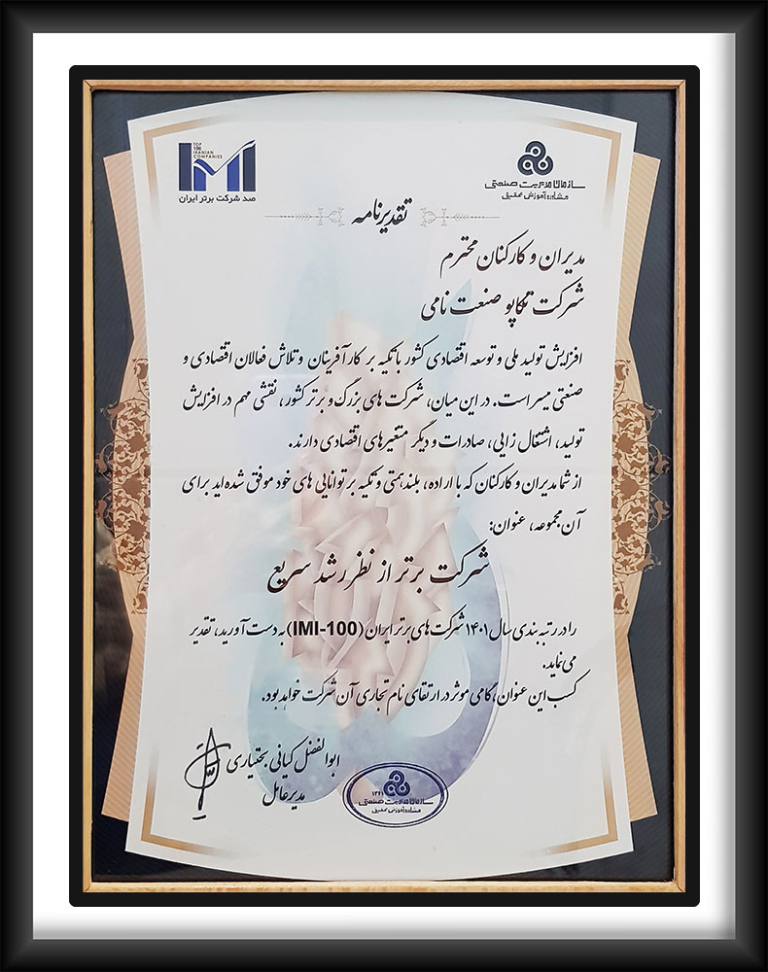 TOP
100
IRANIAN
COMPANIES
صد شرکت برتر ایران
سازمان مدیریت صنعتی
مشاوره آموزش تحقیق
تقدیرنامه
مدیران و کارکنان محترم
شرکت تکاپو صنعت نامی
افزایش تولید ملی و توسعه اقتصادی کشور با تکیه بر کارآفرینان و تلاش فعالان اقتصادی و
صنعتی میسر است. در این میان، شرکت های بزرگ و برتر کشور، نقشی مهم در افزایش
تولید، اشتغال زایی، صادرات و دیگر متغیرهای اقتصادی دارند.
از شما مدیران و کارکنان که با اراده، بلندهمتی و تکیه بر توانایی های خود موفق شده اید برای
آن مجموعه، عنوان:
شرکت برتر از نظر رشد سریع
را در رتبه بندی سال ۱۴۰۱ شرکت های برتر ایران (IMI-100) به دست آورید، تقدیر
می نماید.
کسب این عنوان، گامی موثر در ارتقای نام تجاری آن شرکت خواهد بود.
ابوالفضل کیانی بختیاری
مدیرعامل
۱۳۴۱
سازمان مدیریت صنعتی
مشاوره آموزش تحقیق